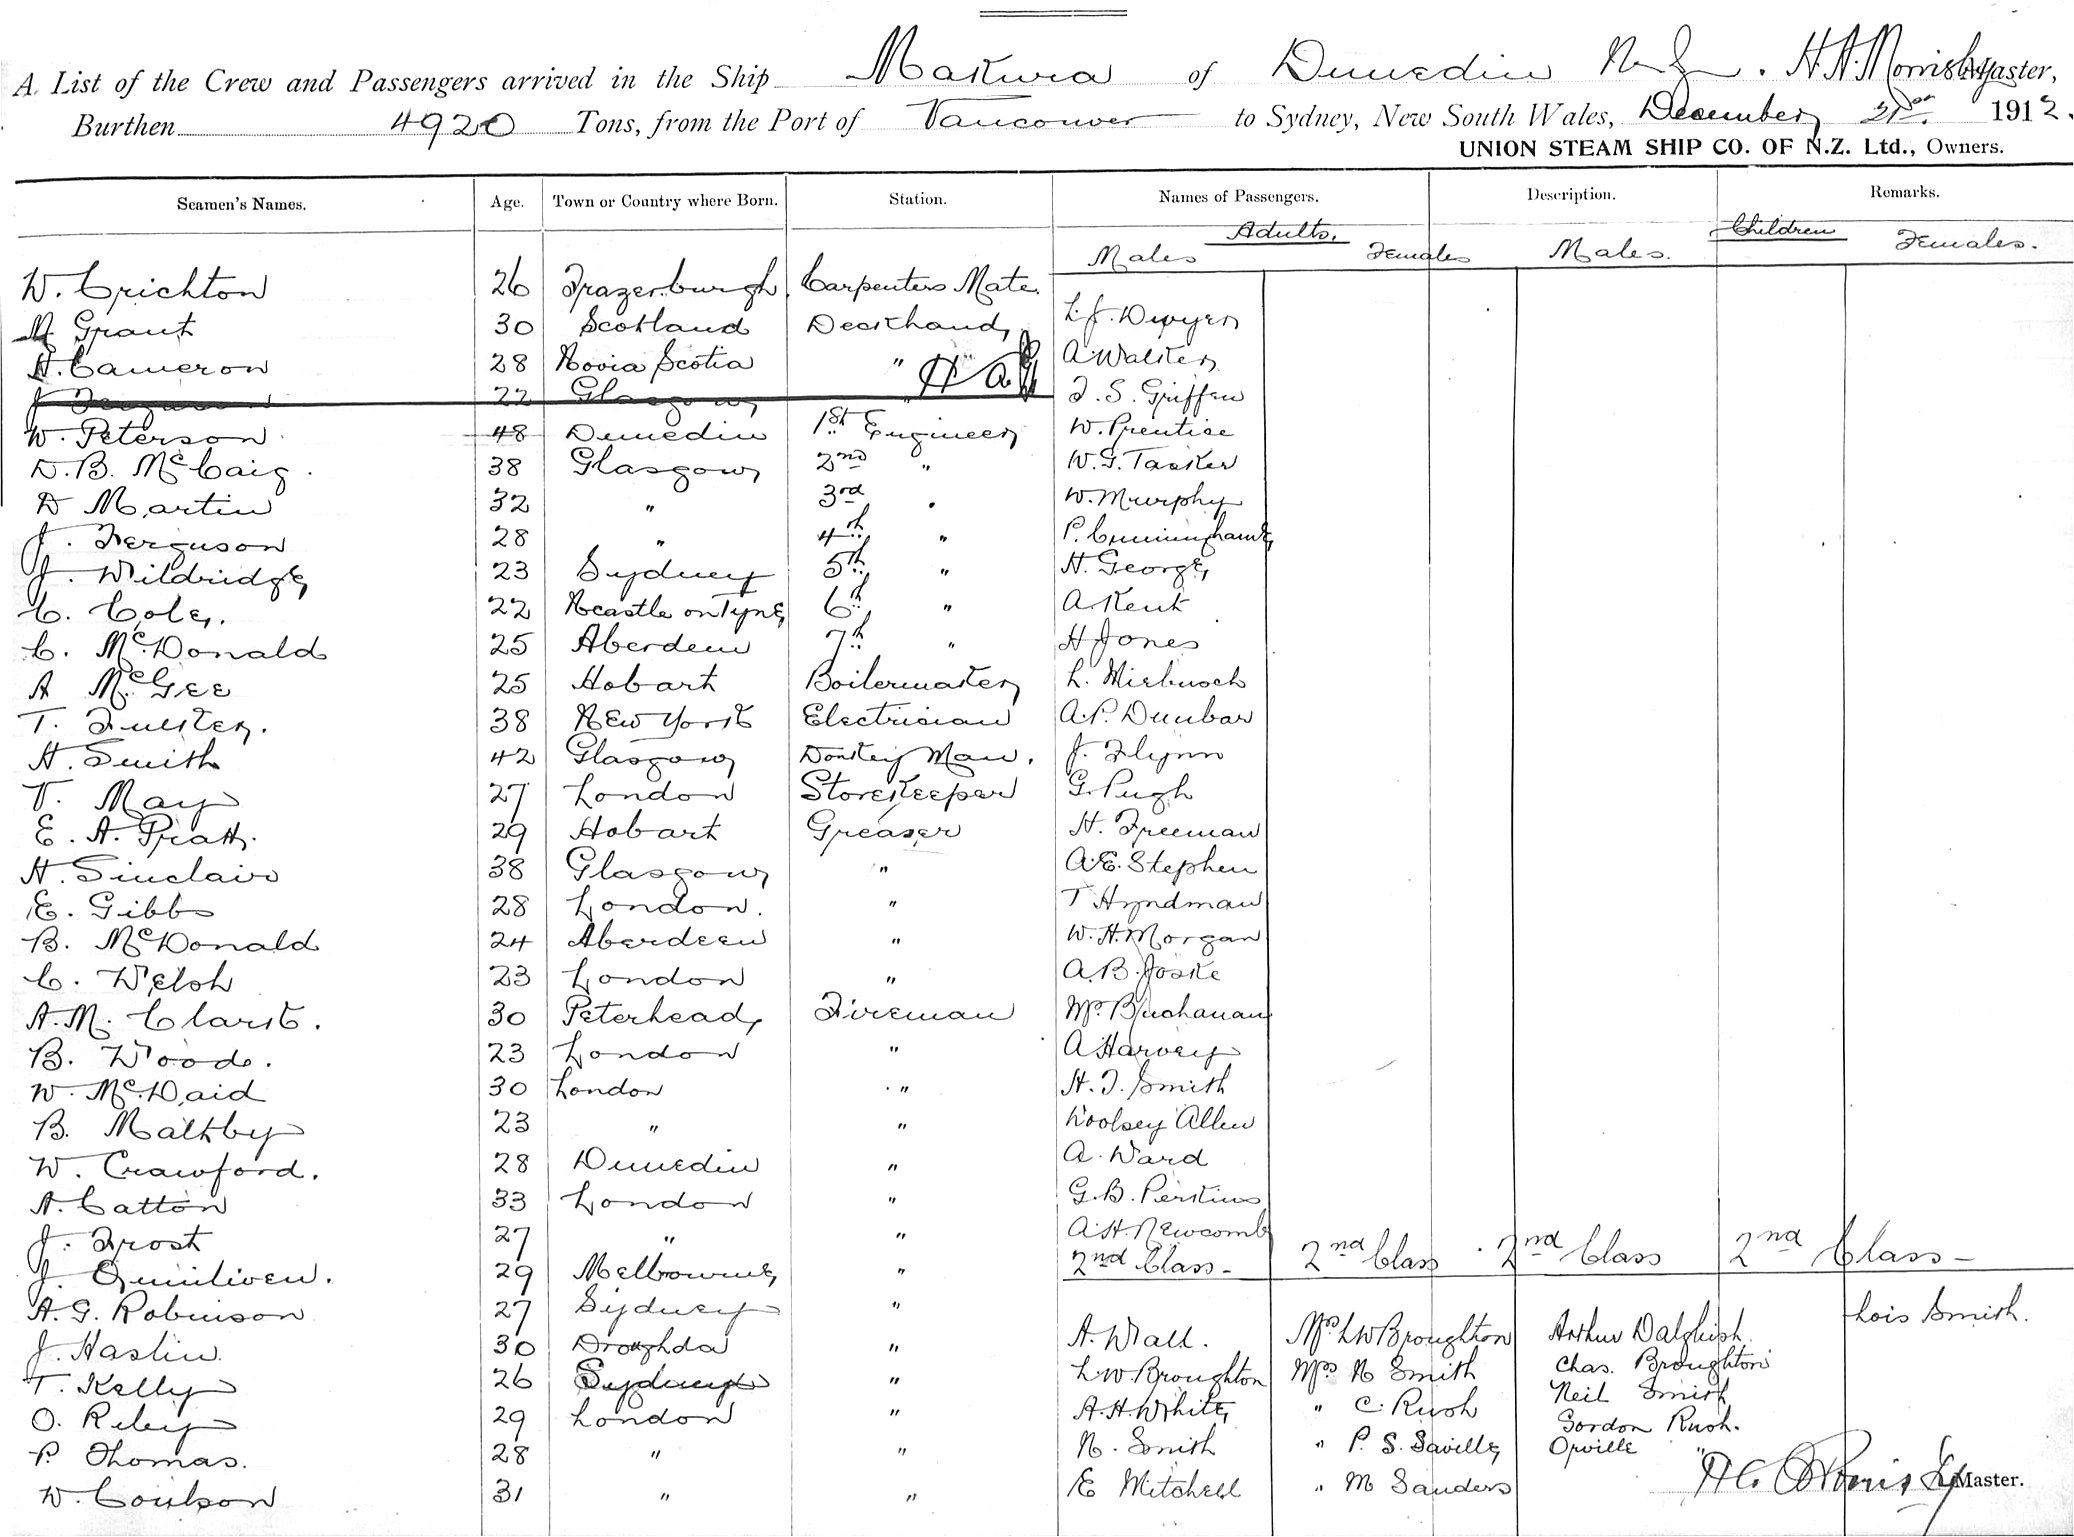 A List of the Crew and Passengers arrived in the Ship Makura of Dunedin N.Z. H A Morrisby Master,
Burthen 4920 Tons, from the Port of Vancouver to Sydney, New South Wales, December 21st 1912.
UNION STEAM SHIP CO. OF N.Z. Ltd., Owners.
Seamen's Names. Age. Town or Country where Born. Station. Names of Passengers. Description. Remarks.
Adults. Children
Males Females Males. Females.
W. Crichton 26 Frazerburgh. Carpenters Mate. L. J. Dwyer
M Grant 30 Scotland Deckhand A. Walker
H. Cameron 28 Novia Scotia " F. S. Griffen
J Ferguson 22 Glasgow "
W. Peterson 48 Dunedin 1st Engineer W. Prentice
D. B. McCaig. 38 Glasgow 2nd " W. G. Tasker
D Martin 32 " 3rd " W. Murphy
J. Ferguson 28 " 4th " P. Cunninghame
J. Wildridge 23 Sydney 5th " H. George
C. Cole. 22 Ncastle on Tyne 6th " A. Kent
C. McDonald 25 Aberdeen 7th " H Jones
A McGee 25 Hobart Boilermaker L.
T. 38 New York Electrician A. P. Dunbar
H. Smith 42 Glasgow Donkey Man. J. Flynn
V. May 27 London Storekeeper G. Pugh
E. A. Pratt. 29 Hobart Greaser H. Freeman
H. Sinclair 38 Glasgow " A. E. Stephen
E. Gibbs 28 London. " T Hyndman
B. McDonald 24 Aberdeen " W. H. Morgan
C. Welsh 23 London " A. B. Joske
A. M. Clark. 30 Peterhead Fireman Mr. Buchanan
B. Woods. 23 London " A Harvey
W. McDaid 30 London " H. J. Smith
B. Maltby 23 " " Woolsey Allen
W. Crawford. 28 Dunedin " A. Ward
A. Catton 33 London " G. B. Perkins
J. Frost 27 " " A. H. Newcomb
J. Quinliven. 29 Melbourne " 2nd Class - 2nd Class 2nd Class 2nd Class -
A. G. Robinson 27 Sydney " Lois Smith.
J. Haslin. 30 Droughda " A. Wall. Mrs L W Broughton Arthur Dalgliesh.
T. Kelly 26 Sydney " L. W. Broughton Mrs N Smith Chas. Broughton
O. Riley 29 London " A. H. White " C. Rush Neil Smith
P. Thomas. 28 " " N. Smith " P. S. Saville Gordon Rush.
Orville "
W. Coulson 31 " " E Mitchell " M Sanders H A Morrisby Master.